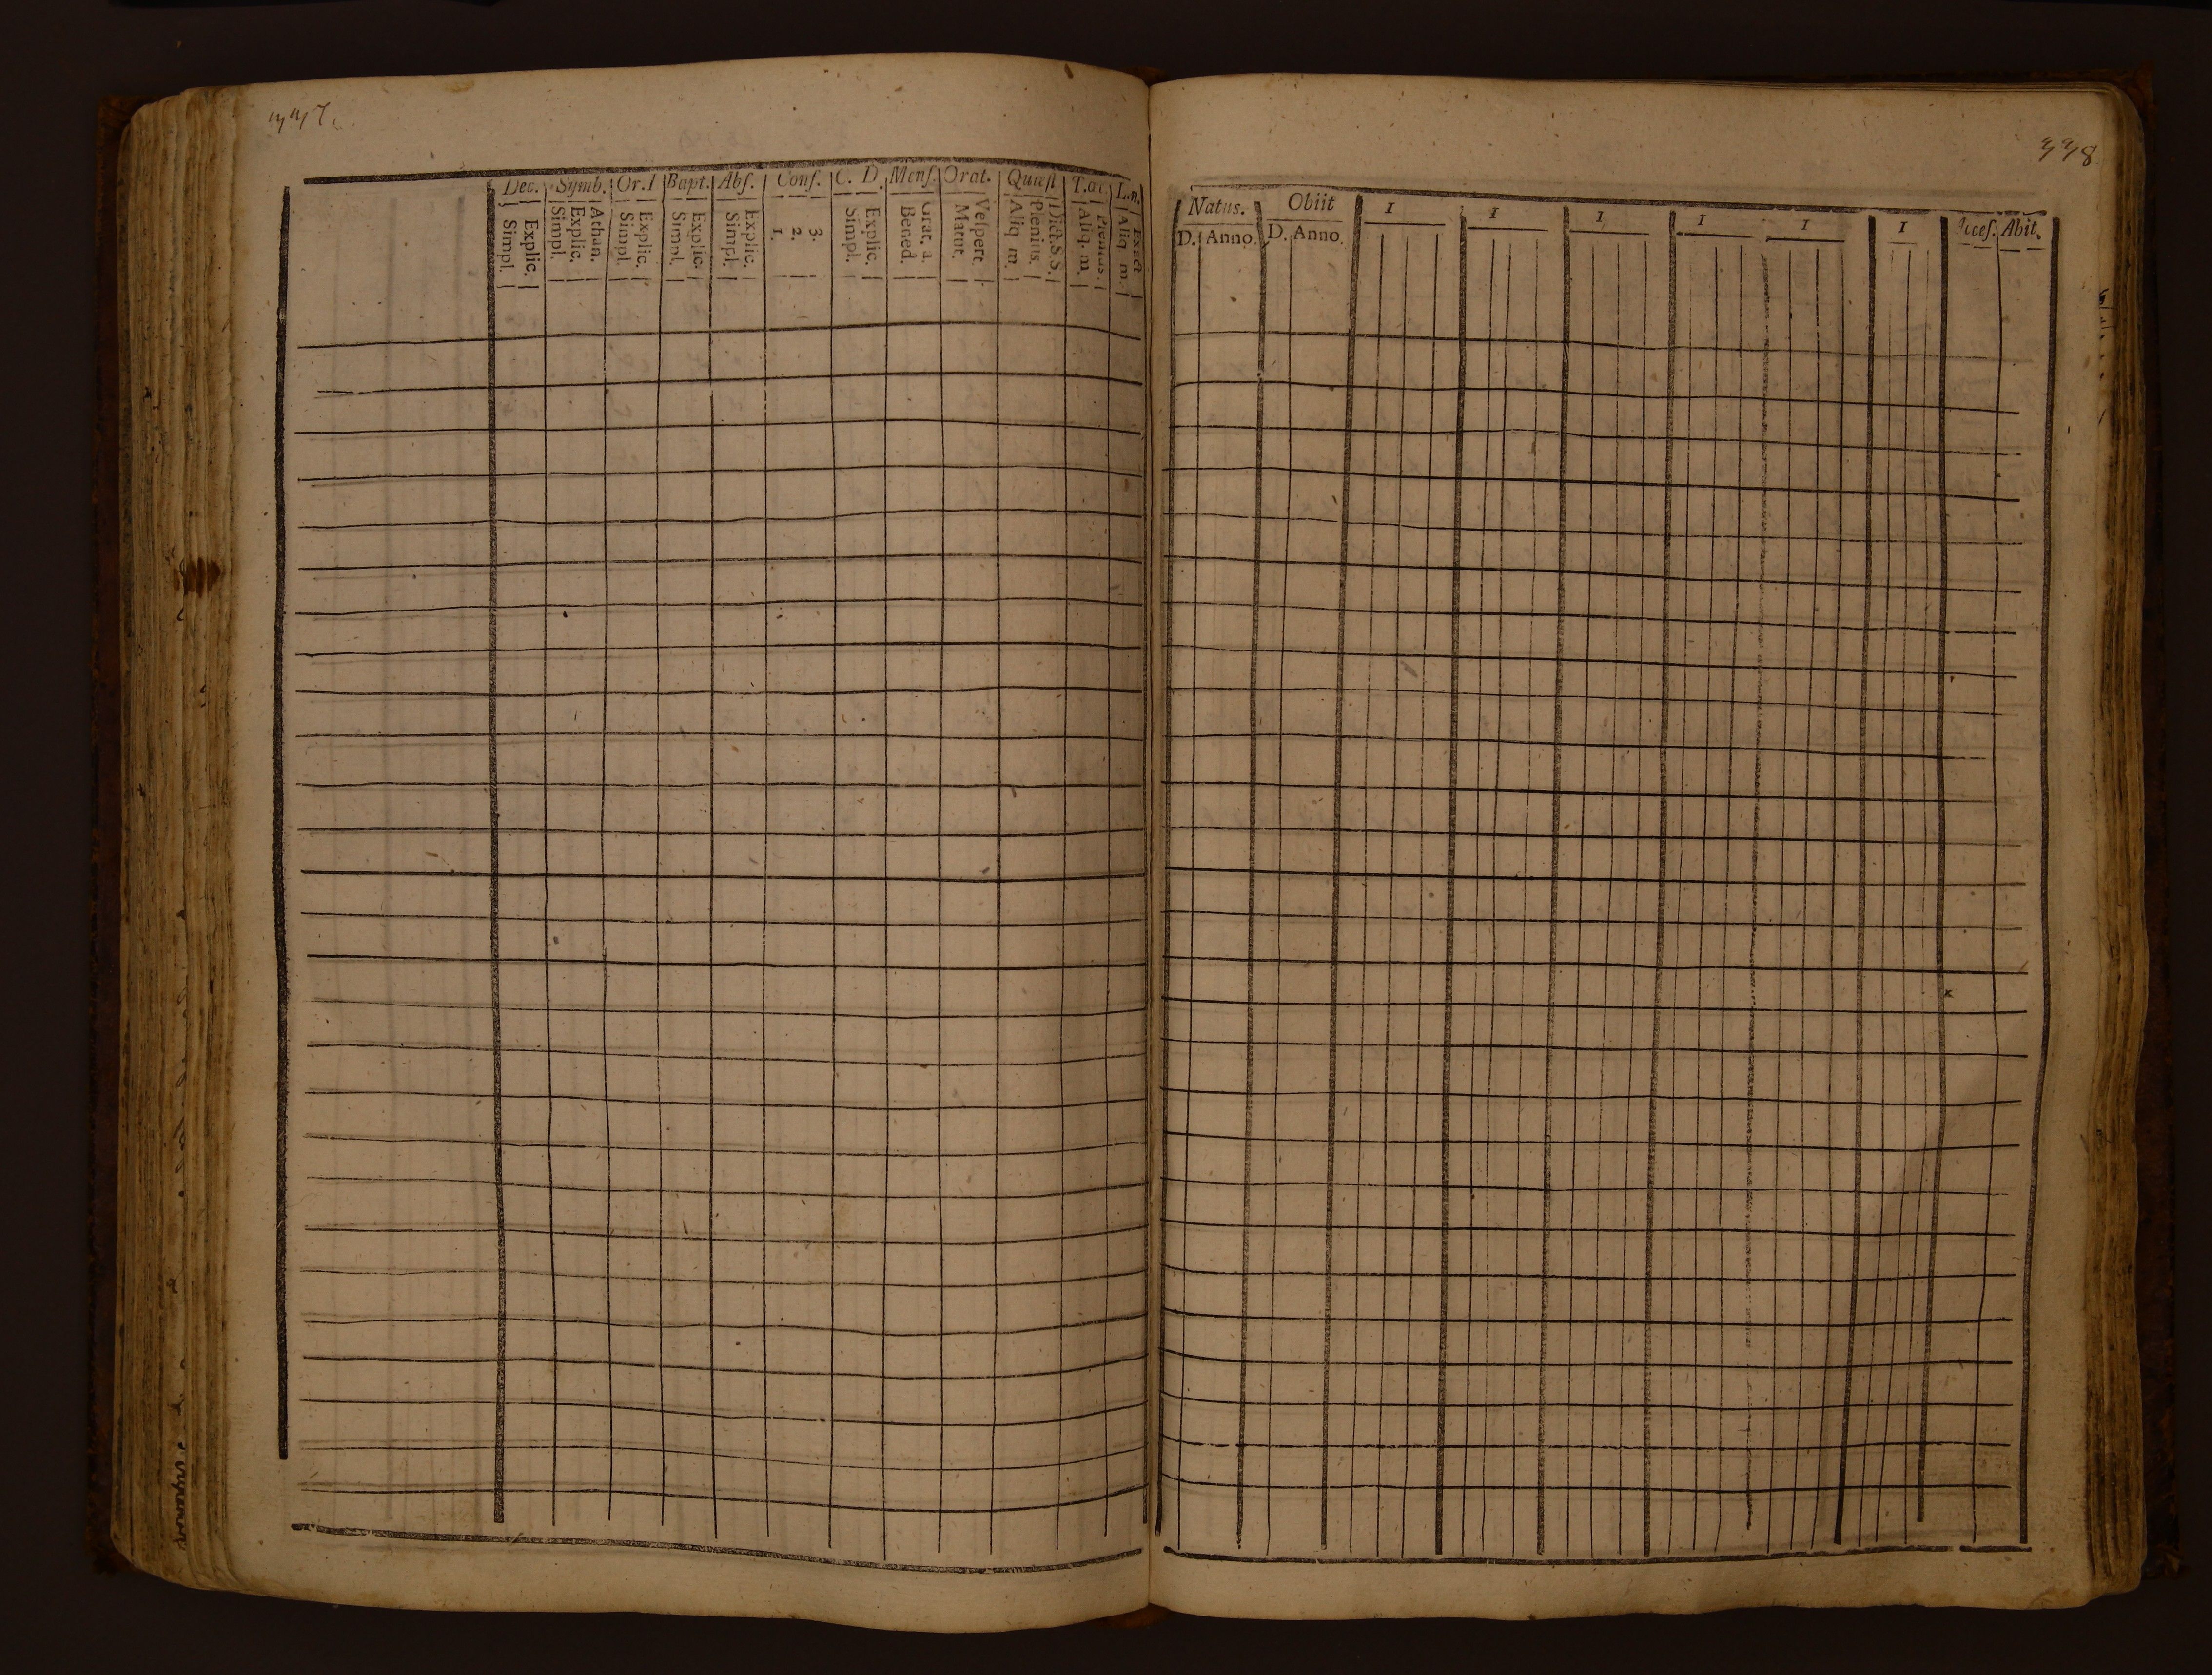 337.
Dec. Symb. Or. I Bapt. Abſ. Conf. C. D. Menſ. Orat. Quæſt T.œc. L.n.
Simpl. Explic. Simpl. Explic. Athan. Simpl. Explic. Simpl. Explic. Simpl. Explic. 1. 2. 3. Simpl. Explic. Bened. Grat. a. Matut. Veſpert. Aliq m. Plenius. Dict.S.S. Aliq. m. Plenius. Aliq. m. Exact
338
Natus. Obiit I I I I I I Acceſ. Abit.
D. Anno. D. Anno.